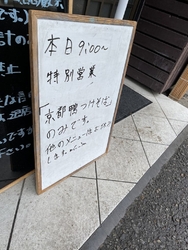 本日9:00〜
特別営業
「京都鴨つけそば」
のみです。
他のメニューは
します。